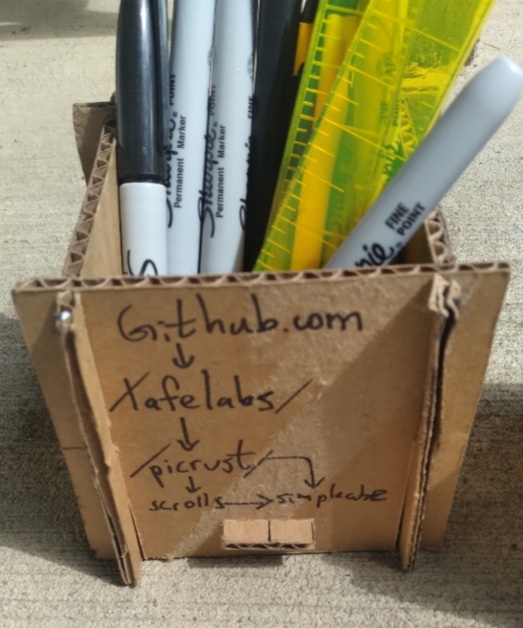 Sharpie.
FINE POINT
Permanent Marker
Sharpie.
FINE POINT
Permanent Marker
FINE
FINE
POINT
Github.com
↓
Xafelabs/
↓
/picrust/
↓
scrolls → simplecube